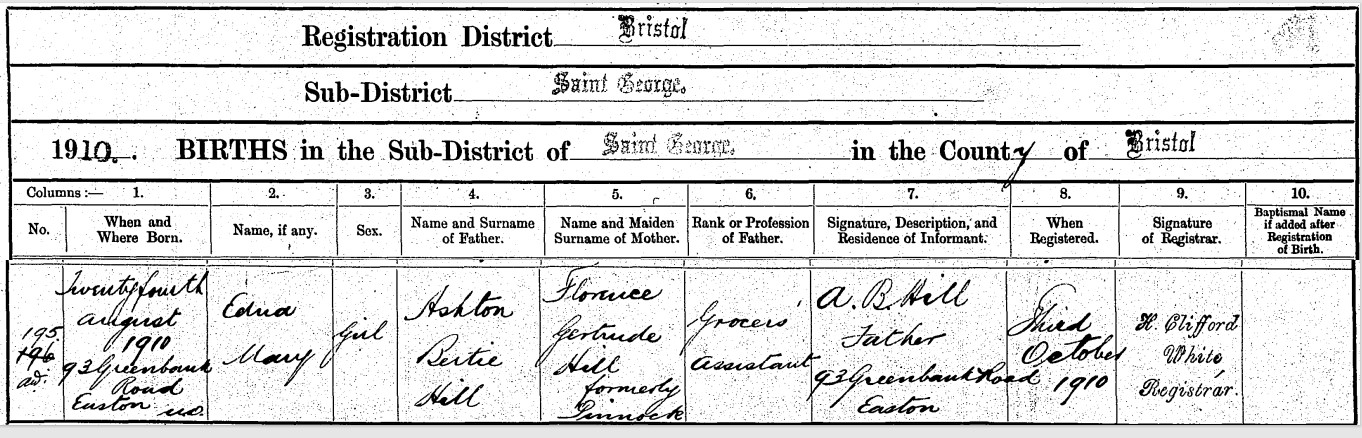 Registration District Bristol
Sub-District Saint George.
1910. BIRTHS in the Sub-District of Saint George. in the County of Bristol
Columns :— 1. 2. 3. 4. 5. 6. 7. 8. 9. 10.
No. When and Where Born. Name, if any. Sex. Name and Surname of Father. Name and Maiden Surname of Mother. Rank or Profession of Father. Signature, Description, and Residence of Informant. When Registered. Signature of Registrar. Baptismal Name if added after Registration of Birth.
195.
196
Twenty fourth
August
1910
93 Greenbank
Road
Easton
Edna
Mary
Girl
Ashton
Bertie
Hill
Florence
Gertrude
Hill
formerly
Pinnock
Grocers
Assistant
A. B. Hill
Father
93 Greenbank Road
Easton
Third
October
1910
H. Clifford
White
Registrar.